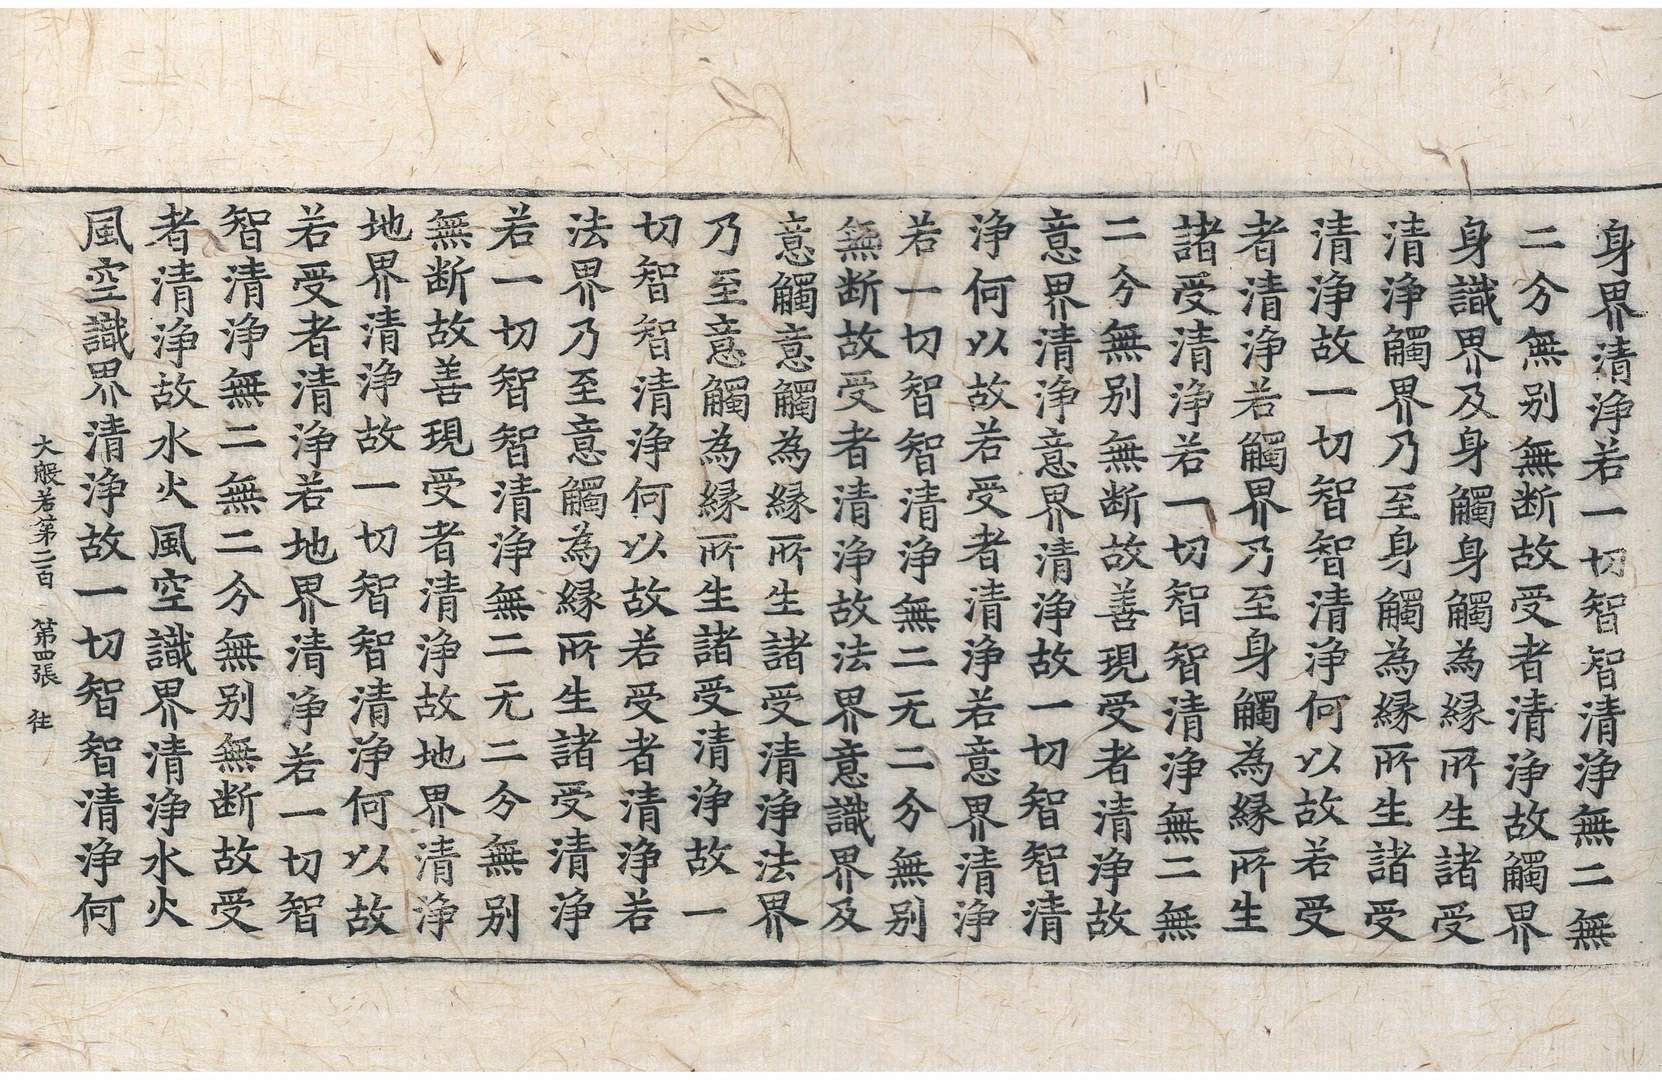 身界清淨若一切智智清淨無二無
二分無別無断故受者清淨故觸界
身識界及身觸身觸為縁所生諸受
清淨觸界乃至身觸為縁所生諸受
清淨故一切智智清淨何以故若受
者清淨若觸界乃至身觸為縁所生
諸受清淨若一切智智清淨無二無
二分無別無断故善現受者清淨故
意界清淨意界清淨故一切智智清
淨何以故若受者清淨若意界清淨
若一切智智清淨無二无二分無別
無断故受者清淨故法界意識界及
意觸意觸為縁所生諸受清淨法界
乃至意觸為縁所生諸受清淨故一
切智智清淨何以故若受者清淨若
法界乃至意觸為縁所生諸受清淨
若一切智智清淨無二无二分無別
無断故善現受者清淨故地界清淨
地界清淨故一切智智清淨何以故
若受者清淨若地界清淨若一切智
智清淨無二無二分無別無断故受
者清淨故水火風空識界清淨水火
風空識界清淨故一切智智清淨何
大般若第二百 第四張 往